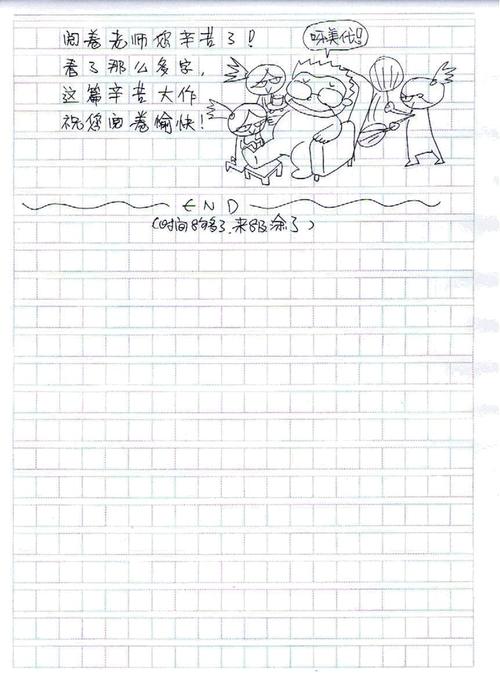 阅卷老师您辛苦了!
看了那么多字,
这篇辛苦大作
祝您阅卷愉快!
呀美代!
END
(时间够了,来涂了)